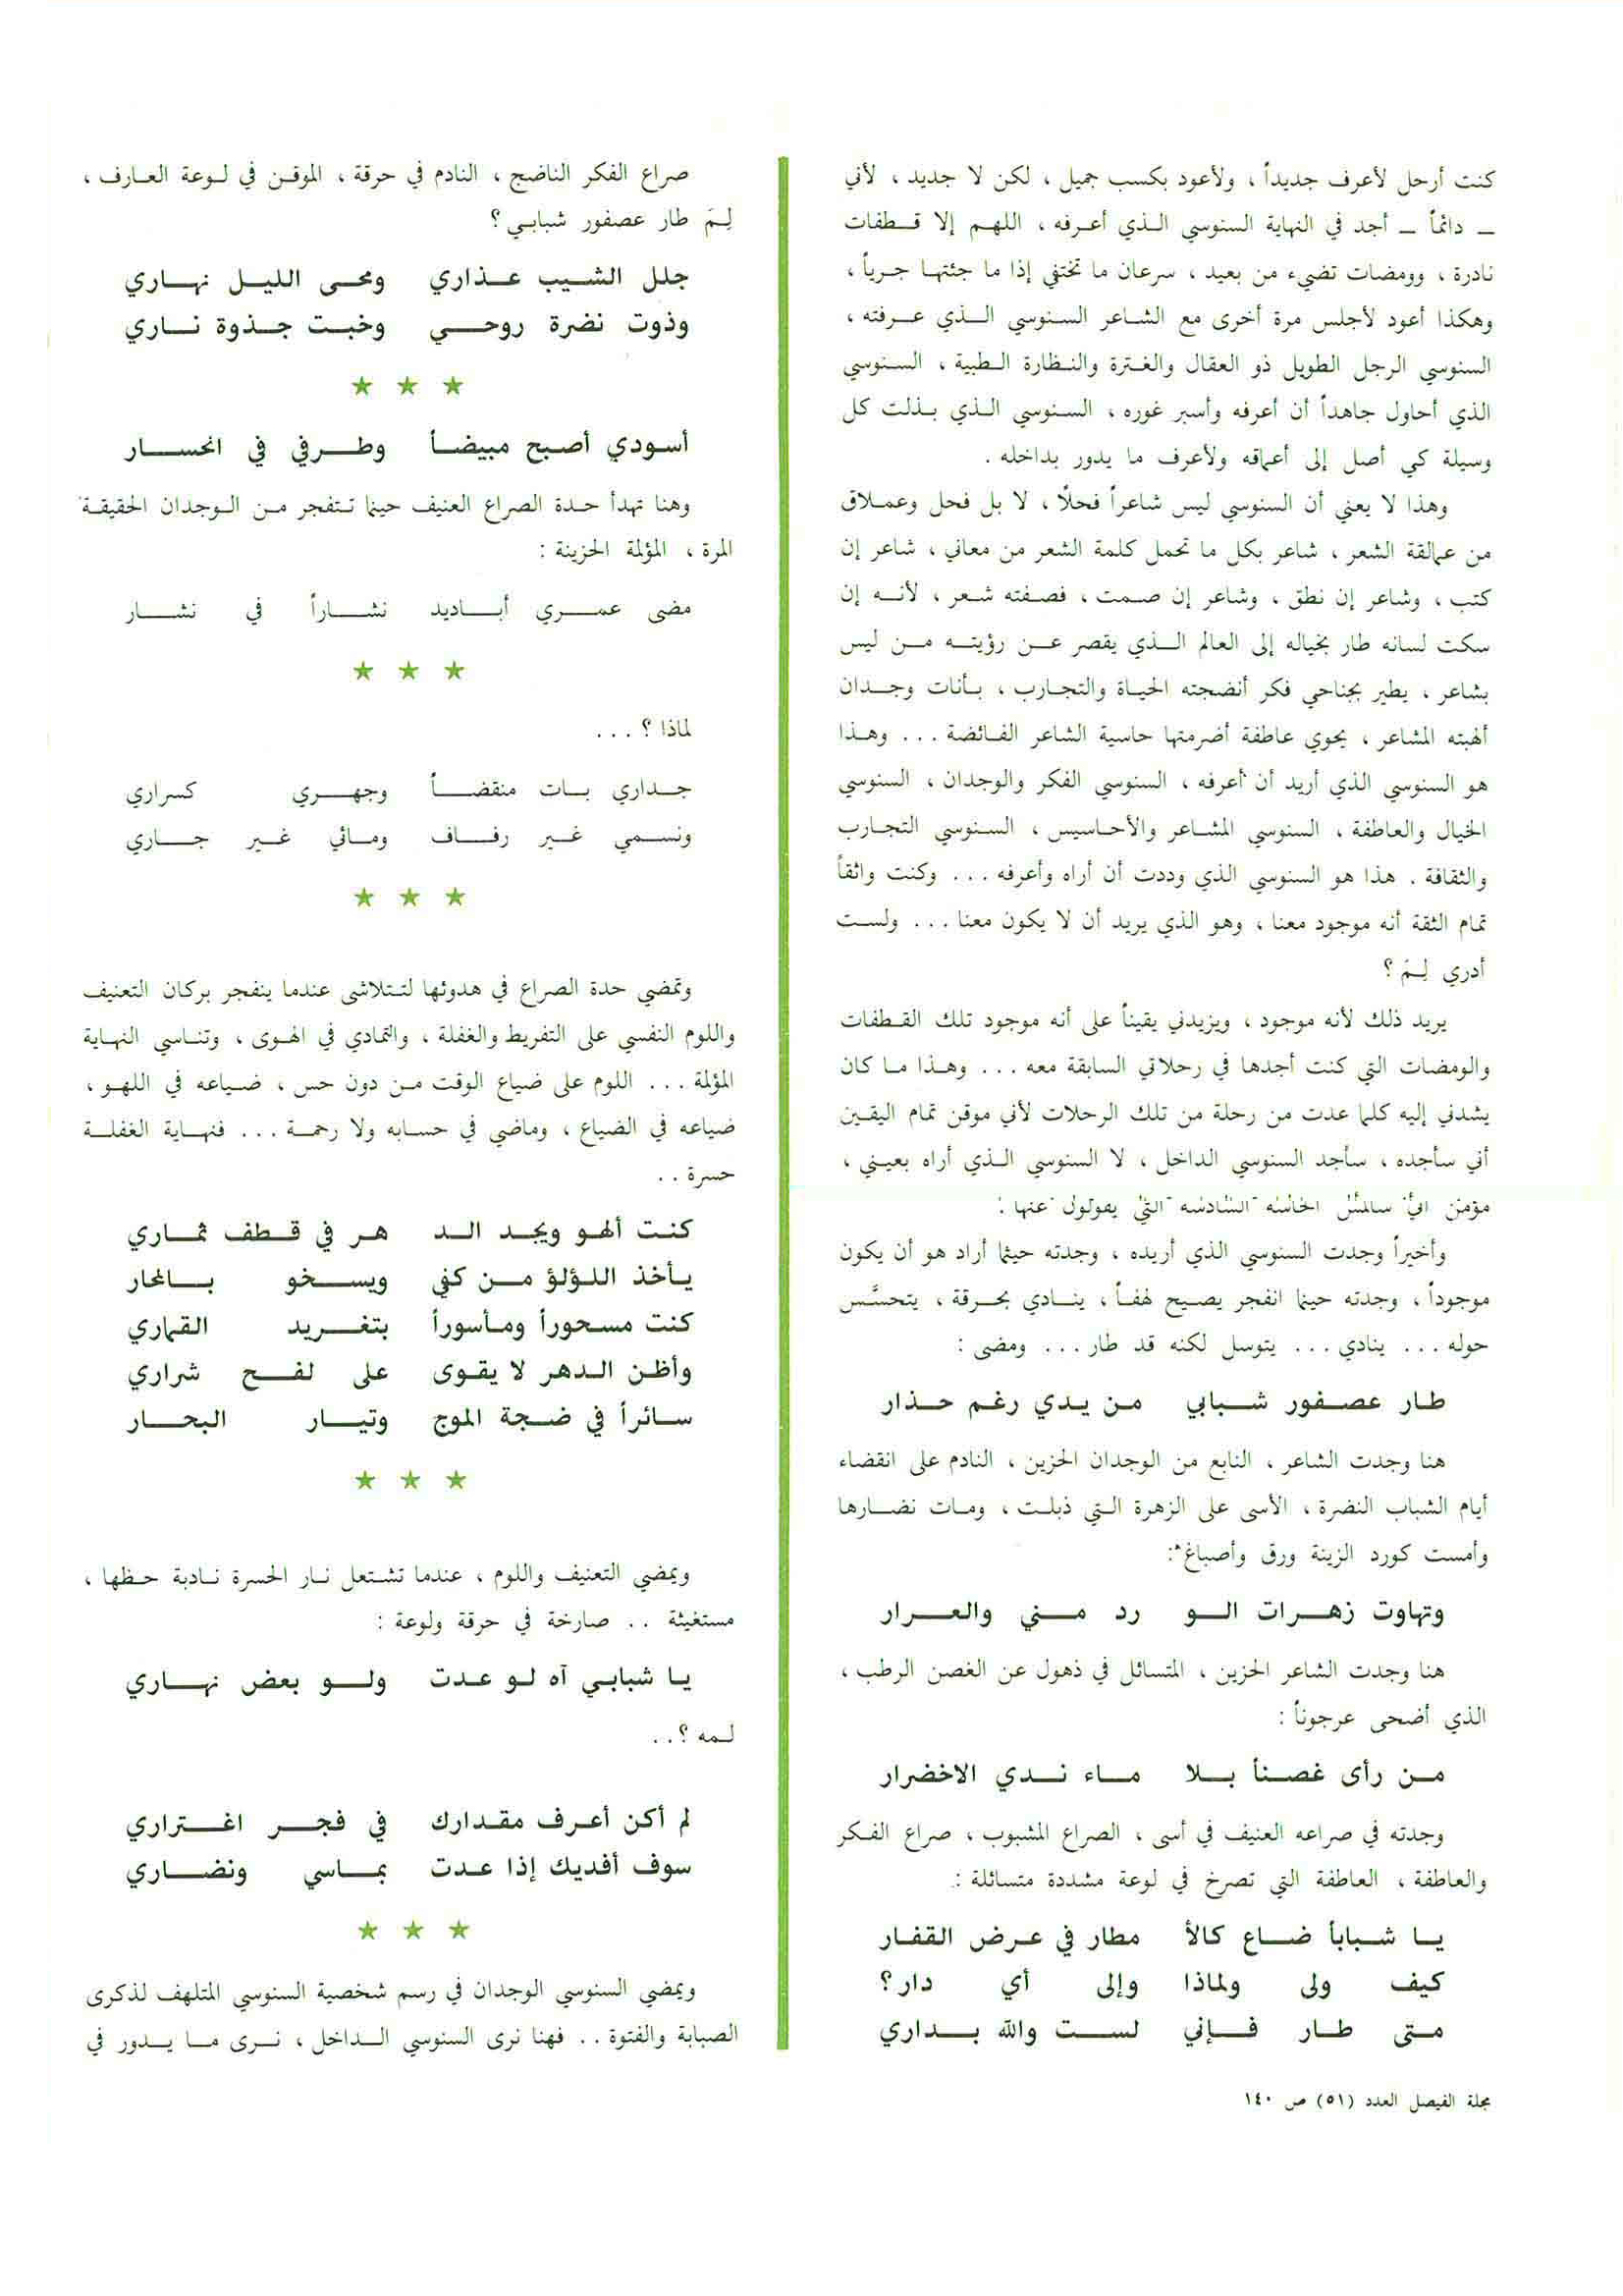 كنت أرحل لأعرف جديداً ، ولأعود بكسب جميل ، لكن لا جديد ، لأني
ــ دائماً ــ أجد في النهاية السنوسي الذي أعرفه ، اللهم إلا قطفات
نادرة ، وومضات تضيء من بعيد ، سرعان ما تختفي إذا ما جئتها جرياً ،
وهكذا أعود لأجلس مرة أخرى مع الشاعر السنوسي الذي عرفته ،
السنوسي الرجل الطويل ذو العقال والغترة والنظارة الطبية ، السنوسي
الذي أحاول جاهداً أن أعرفه وأسبر غوره ، السنوسي الذي بذلت كل
وسيلة كي أصل إلى أعماقه ولأعرف ما يدور بداخله .
وهذا لا يعني أن السنوسي ليس شاعراً فحلاً ، لا بل فحل وعملاق
من عمالقة الشعر ، شاعر بكل ما تحمل كلمة الشعر من معاني ، شاعر إن
كتب ، وشاعر إن نطق ، وشاعر إن صمت ، فصفته شعر ، لأنه إن
سكت لسانه طار بخياله إلى العالم الذي يقصر عن رؤيته من ليس
بشاعر ، يطير بجناحي فكر أنضجته الحياة والتجارب ، بأنات وجدان
ألهبته المشاعر ، يحوي عاطفة أضرمتها حاسية الشاعر الفائضة ... وهذا
هو السنوسي الذي أريد أن أعرفه ، السنوسي الفكر والوجدان ، السنوسي
الخيال والعاطفة ، السنوسي المشاعر والأحاسيس ، السنوسي التجارب
والثقافة . هذا هو السنوسي الذي وددت أن أراه وأعرفه ... وكنت واثقاً
تمام الثقة أنه موجود معنا ، وهو الذي يريد أن لا يكون معنا ... ولست
أدري لِمَ ؟
يريد ذلك لأنه موجود ، ويزيدني يقيناً على أنه موجود تلك القطفات
والومضات التي كنت أجدها في رحلاتي السابقة معه ... وهذا ما كان
يشدني إليه كلما عدت من رحلة من تلك الرحلات لأني موقن تمام اليقين
أني سأجده ، سأجد السنوسي الداخل ، لا السنوسي الذي أراه بعيني ،
مؤمن أني سألمس الحاسة السادسة التي يقولون عنها :
وأخيراً وجدت السنوسي الذي أريده ، وجدته حينما أراد هو أن يكون
موجوداً ، وجدته حينما انفجر يصيح لهفاً ، ينادي بحرقة ، يتحسَّس
حوله ... ينادي ... يتوسل لكنه قد طار ... ومضى :
طار عصفور شبابي من يدي رغم حذار
هنا وجدت الشاعر ، النابع من الوجدان الحزين ، النادم على انقضاء
أيام الشباب النضرة ، الأسى على الزهرة التي ذبلت ، ومات نضارها
وأمست كورد الزينة ورق وأصباغ :
وتهاوت زهرات الو رد مني والعرار
هنا وجدت الشاعر الحزين ، المتسائل في ذهول عن الغصن الرطب ،
الذي أضحى عرجوناً :
من رأى غصناً بلا ماء ندي الاخضرار
وجدته في صراعه العنيف في أسى ، الصراع المشبوب ، صراع الفكر
والعاطفة ، العاطفة التي تصرخ في لوعة مشددة متسائلة :
يا شباباً ضاع كالأ مطار في عرض القفار
كيف ولى ولماذا وإلى أي دار ؟
متى طار فإني لست والله بداري
مجلة الفيصل العدد (٥١) ص ١٤٠
صراع الفكر الناضج ، النادم في حرقة ، الموقن في لوعة العارف ،
لِمَ طار عصفور شبابي ؟
جلل الشيب عذاري ومحى الليل نهاري
وذوت نضرة روحي وخبت جذوة ناري
★ ★ ★
أسودي أصبح مبيضاً وطرفي في انحسار
وهنا تهدأ حدة الصراع العنيف حينما تتفجر من الوجدان الحقيقة
المرة ، المؤلمة الحزينة :
مضى عمري أباديد نشاراً في نشار
★ ★ ★
لماذا ؟ ...
جداري بات منقضاً وجهري كسراري
ونسمي غير رفاف ومائي غير جاري
★ ★ ★
وتمضي حدة الصراع في هدوئها لتتلاشى عندما ينفجر بركان التعنيف
واللوم النفسي على التفريط والغفلة ، والتمادي في الهوى ، وتناسي النهاية
المؤلمة ... اللوم على ضياع الوقت من دون حس ، ضياعه في اللهو ،
ضياعه في الضياع ، وماضي في حسابه ولا رحمة ... فنهاية الغفلة
حسرة ..
كنت ألهو ويجد الد هر في قطف ثماري
يأخذ اللؤلؤ من كفي ويسخو بالمحار
كنت مسحوراً ومأسوراً بتغريد القماري
وأظن الدهر لا يقوى على لفح شراري
سائراً في ضجة الموج وتيار البحار
★ ★ ★
ويمضي التعنيف واللوم ، عندما تشتعل نار الحسرة نادبة حظها ،
مستغيثة .. صارخة في حرقة ولوعة :
يا شبابي آه لو عدت ولو بعض نهاري
لمه ؟ ..
لم أكن أعرف مقدارك في فجر اغتراري
سوف أفديك إذا عدت بماسي ونضاري
★ ★ ★
ويمضي السنوسي الوجدان في رسم شخصية السنوسي المتلهف لذكرى
الصبابة والفتوة .. فهنا نرى السنوسي الداخل ، نرى ما يدور في